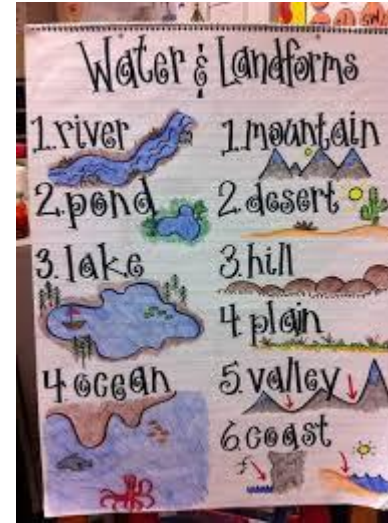 Water & Landforms
1. river
2. pond
3. lake
4 ocean
1. mountain
2. desert
3. hill
4. plain
5. valley
6. coast